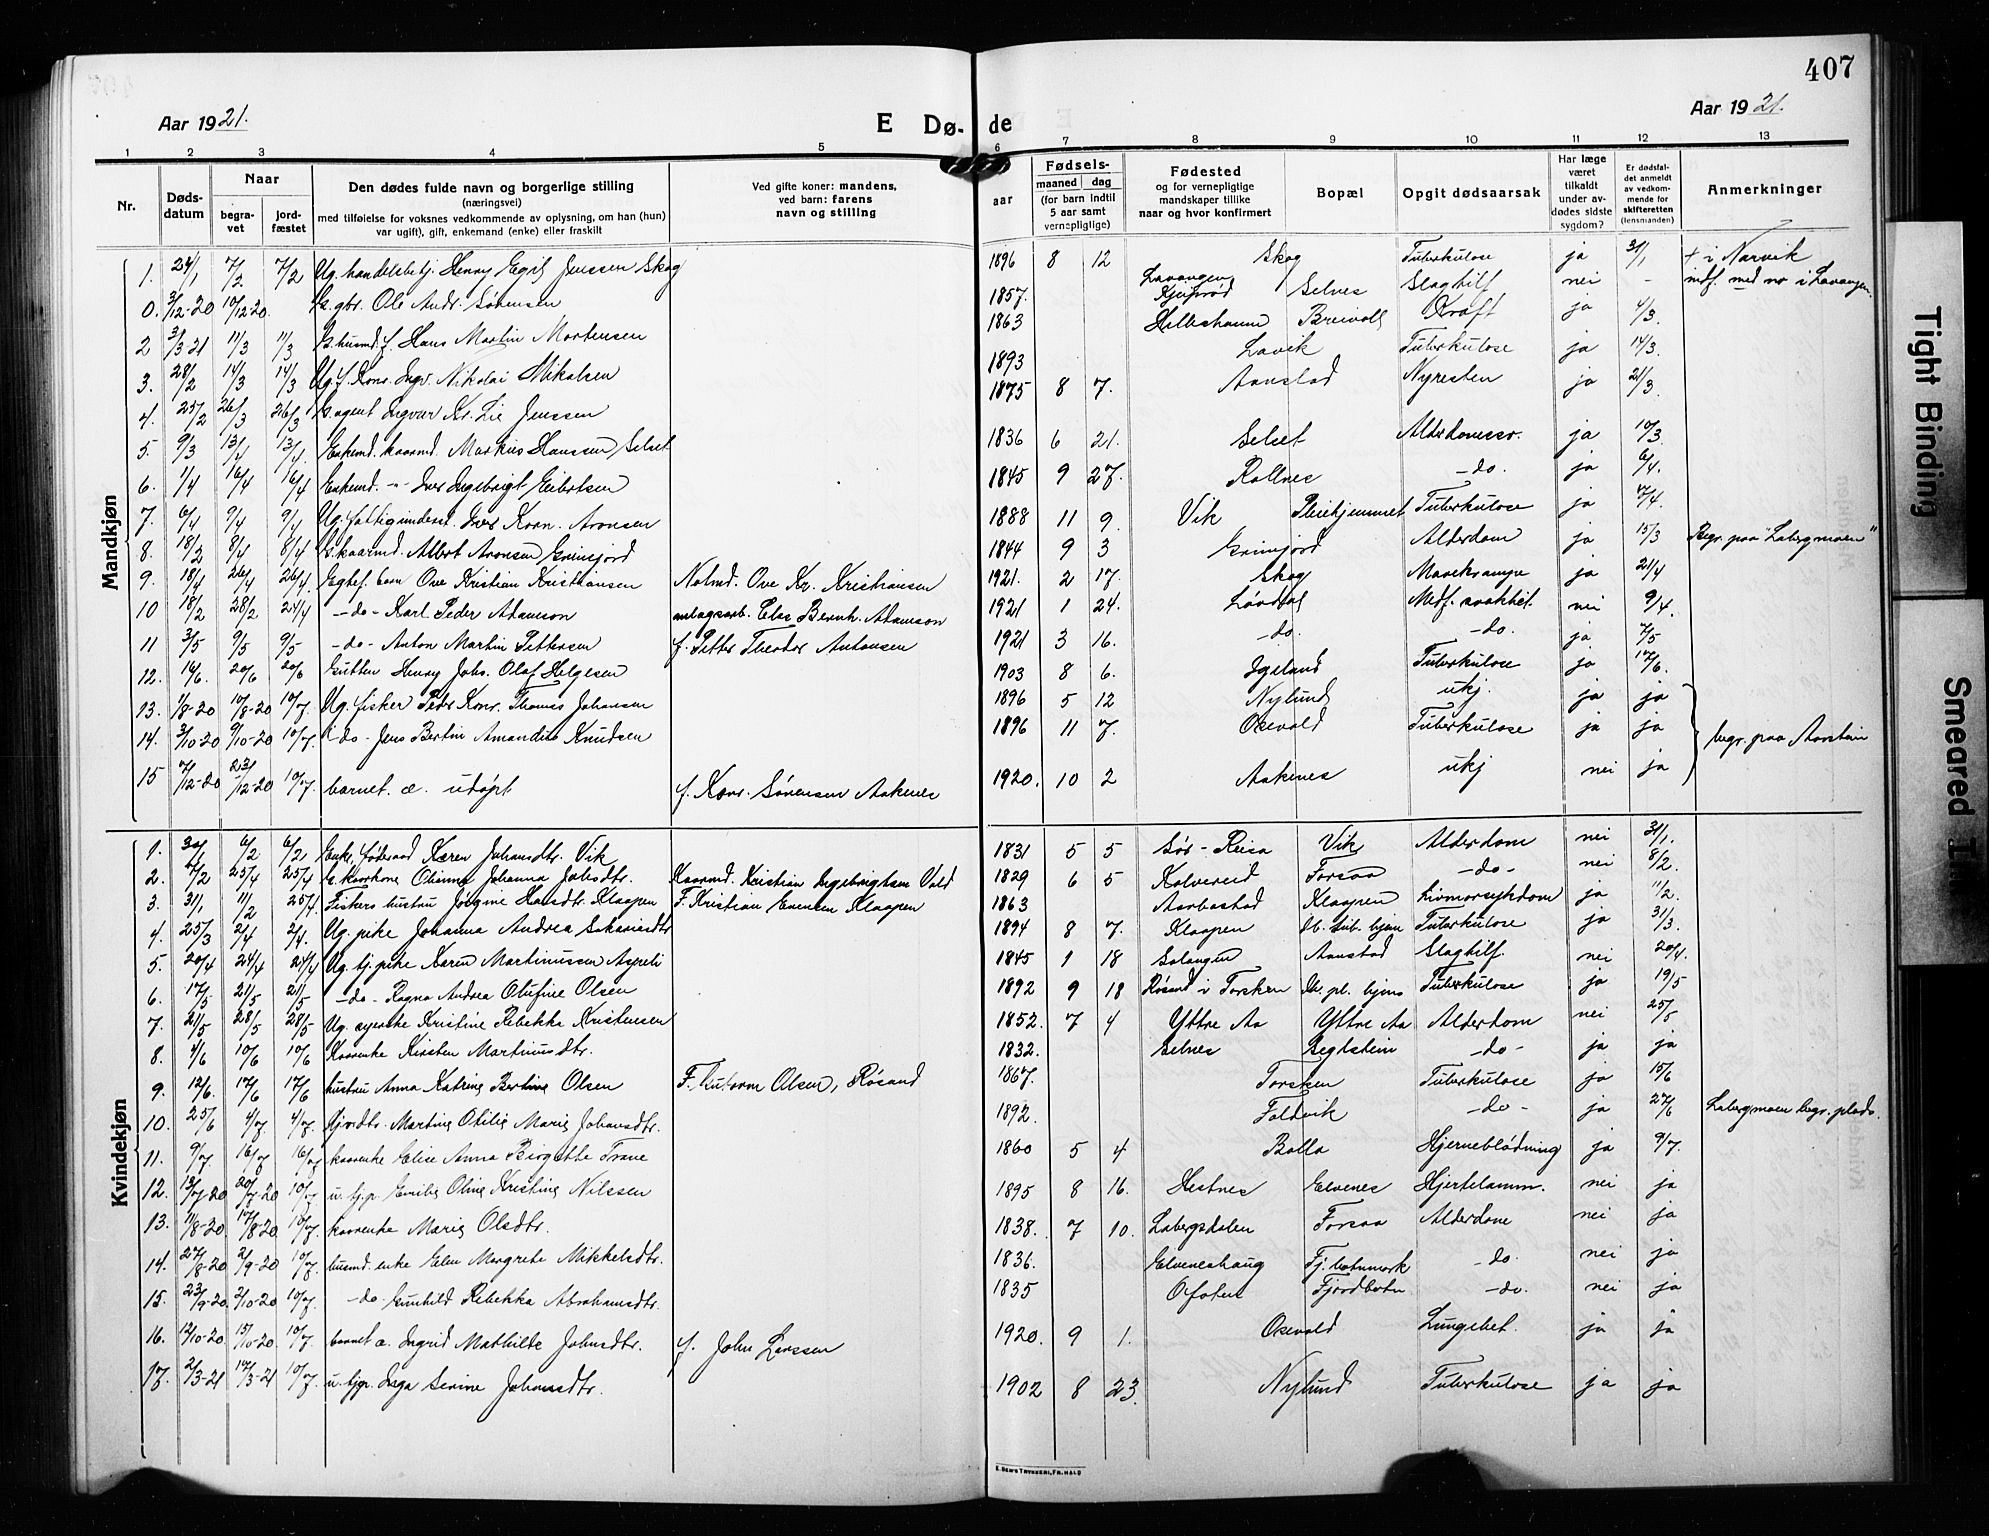 407
Aar 1921.
E Dø- de
Aar 1921.
1 2 3 4 5 6 7 8 9 10 11 12 13
Nr.
Døds-datum
Naar
begra-vet
jord-fæstet
Den dødes fulde navn og borgerlige stilling
(næringsvei)
med tilføielse for voksnes vedkommende av oplysning, om han (hun)
var ugift), gift, enkemand (enke) eller fraskilt
Ved gifte koner: mandens,
ved barn: farens
navn og stilling
Fødsels-
aar
maaned dag
(for barn indtil
5 aar samt
vernepligtige)
Fødested
og for vernepligtige
mandskaper tillike
naar og hvor konfirmert
Bopæl
Opgit dødsaarsak
Har læge
været
tilkaldt
under av-
dødes sidste
sygdom?
Er dødsfal-
det anmeldt
av vedkom-
mende for
skifteretten
(lensmanden)
Anmerkninger
Mandkjøn
1. 24/1 7/2 7/2 Ug. handelsbetj. Henry Egil Jenssen Skog 1896 8 12 Skog Tuberkulose ja 31/1 + i Narvik
0. 3/12-20 10/12-20. G. gbr. Ole Andr. Sørensen 1857. Lavangen Selnes Slagtilf nei - indf. med nr i Lavangen.
2 3/3-21 11/3 11/3 G. husmd. f. Hans Martin Mortensen 1863 Breivoll Kræft ja 4/3.
3. 28/2 14/3 14/3 Ug. f. Kons. Ingv. Nikolai Mikalsen 1893 Lavik Tuberkulose ja 14/3.
4. 25/2 26/3 26/3 G. agent Ingvar Kr. Lie Jenssen 1875 8 7. Aanstad Nyresten ja 21/3
5. 9/3 13/4 13/4. Enkemd. kaarmd. Markus Hanssen Selset 1836 6 21. Selset ja 10/3.
6. 1/4 16/4 16/4 Enkemd. -"- Iver Ingebrigt Eibertsen 1845 9 27. Rollnes -do. ja 6/4.
7. 6/4 9/4 9/4 Ug. fattigunderst. Iver Korn. Aronsen 1888 11 9. Vik Pleiehjemmet Tuberkulose ja 7/4.
8. 18/3 8/4 8/4 G. kaarmd. Albert Aronsen Grinsjord 1844 9 3 Grinsjord Alderdom ja 15/3 Begr. paa "Labergmoen"
9. 18/4 26/4 26/4 Egtef. barn Ove Kristian Kristiansen Notmd. Ove Kr. Kristiansen 1921. 2 17. Skog Mavekrampe ja 21/4
10 18/2 28/2 24/4 -do- Karl Peder Adamson anlægsarb. Elas Bernh. Adamson 1921 1 24. Løvdal Medf. svakhet. nei 9/4.
11 3/5 9/5 9/5 -do- Anton Martin Pettersen f. Petter Theodor Antonsen 1921 3 16. -do. -do. ja 7/5
12. 14/6. 20/6 20/6 Gutten Henry Johs. Olaf Helgesen 1903 8 6. Igeland Tuberkulose ja 17/6.
13. 1/8-20 10/8-20 10/7. Ug. fisker Peder Konr. Thomas Johansen 1896 5 12 Nylund ukj. ja ja
14. 3/10-20 9/10-20 10/7. -do- Jens Bertin Amandus Knudsen 1896 11 7. Oxevold Tuberkulose ja ja begr. paa Aarstein
15 7/12-20 23/12-20 10/7. barnet. æ. utdøpt f. Konr. Sørensen Aakenes 1920. 10 2 Aakenes ukj nei ja
Kvindekjøn
1. 30/1 6/2 6/2 Enke, føderaad Karen Johansdtr. Vik 1831 5 5 Sør-Reisa Vik Alderdom nei 31/1.
2. 7/2 25/4 25/4 G. kaarkone Olianna Johanna Johsdtr. Kaarmd. Kristian Ingebrigtsen Vold 1829 6 5 Kalvereid Forsaa -do- nei 8/2.
3. 31/1 11/2 25/4. Fiskers hustru Jørgine Hansdtr. Klaapen F. Kristian Evensen Klaapen 1863 Aarbostad Klaapen Livmorsykdom ja 11/2.
4. 25/3 2/4 2/4. Ug. pike Johanna Andrea Sakariasdtr 1894 8 7. Klaapen Tuberkulose ja 31/3.
5. 20/4 24/4 24/4 Ug. tj. pike Karen Martinussen Aspeli 1845 1 18 Salangen Aanstad Slagtilf. nei 20/4.
6. 17/5 21/5 21/5 -do- Ragna Andrea Olufine Olsen 1892 9 18 Røsand i Torsken Tuberkulose ja 19/5
7. 21/5 28/5 28/5 Ug. syerske Kristine Rebekka Kristensen 1852. 7 4 Yttre Aa Yttre Aa Alderdom nei 25/5
8. 4/6 10/6 10/6 Kaarenke Kirsten Martinusdtr. 1832. Selnes Seglstein -do- ja ja
9. 12/6. 17/6 17/6 hustru Anna Katrine Bertine Olsen F. Olsen, Røsand 1867. Torsken Tuberkulose ja 15/6
10. 25/6 4/7 4/7. Gjordtr. Martine Otilie Marie Johansdtr. 1892. Foldvik -do- ja 27/6 Labergmoen begr. plads.
11. 9/7. 16/7 16/7 kaarenke Elise Anna Birgitte Trane 1860 5 4 Bolla Hjerneblødning ja 9/7.
12. 13/7-20 20/7-20 10/7 u. tj.p. Emilie Oline Kristine Nilssen 1895 8 16. Hestnes Elvenes Hjertelamm. nei ja
13. 11/8-20 17/8-20. 10/7. kaarenke Marie Olsdtr. 1838. 7 10. Labergsdalen Forsaa Alderdom nei ja
14. 27/8-20 2/9-20 10/7. husmd. enke Elen Margrete Mikkelsdtr. 1836. Elveneshaug Fj. botnmark -do. nei ja
15. 23/9-20 3/10-20 10/7. -do- Gunhild Rebekka Abrahamsdtr. 1835 Ofoten Fjordbotn -do. nei ja
16. 12/10-20 15/10-20. 10/7. barnet æ. Ingrid Mathilde Johnsdtr. f. John Larssen 1920. 9 1. Oxevold Lungebet. ja ja
17. 2/3-21 17/3-21 10/7. u. tjp. Inga Serine Johansdtr. 1902 8 23. Nylund Tuberkulose ja ja
E. SEM'S TRYKKERI, FR. HALD
Tight Binding
Smeared Ink